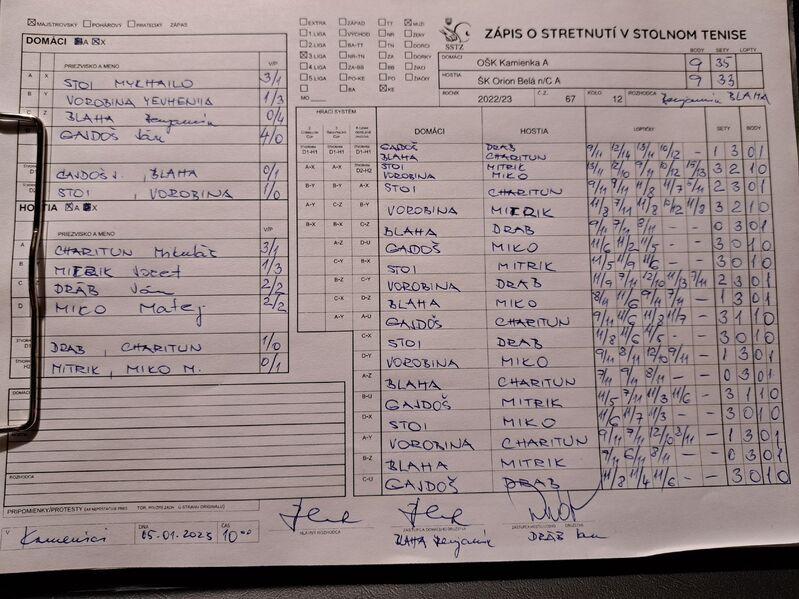 MAJSTROVSKÝ POHÁROVÝ PRIATEĽSKÝ ZÁPAS
DOMÁCI A X
PRIEZVISKO A MENO V/P
A X STOI MYKHAILO 3/1
B Y VOROBINA YEVHENIIA 1/3
C Z BLAHA Benjamín 0/4
GAJDOŠ Ján 4/0
GAJDOŠ J., BLAHA 0/1
STOI, VOROBINA 1/0
HOSTIA A X
PRIEZVISKO A MENO V/P
A CHARITUN Mikuláš 3/1
B MITRIK Jozef 1/3
C DRÁB Ján 2/2
D MIKO Matej 2/2
DRAB, CHARITUN 1/0
MITRIK, MIKO M. 0/1
ROZHODCA
PRIPOMIENKY/PROTESTY
V Kamienke DNA 05.01.2023 ČAS 10 00
EXTRA ZÁPAD TT MUŽI
1. LIGA VÝCHOD NR ŽENY
2. LIGA BA-TT TN DORCI
3. LIGA NR-TN ZA DORKY
4. LIGA ZA-BB BB ŽIACI
5. LIGA PO-KE PO ŽIAČKY
BA KE
MO
SSTZ
ZÁPIS O STRETNUTÍ V STOLNOM TENISE
BODY SETY LOPTY
DOMÁCI OŠK Kamienka A 9 35
HOSTIA ŠK Orion Belá n/C A 9 33
ROČNÍK 2022/23 Č.Z. 67 KOLO 12 ROZHODCA Benjamín BLAHA
HRACÍ SYSTÉM
DOMÁCI HOSTIA LOPTIČKY SETY BODY
GAJDOŠ BLAHA DRAB CHARITUN 9/11 12/14 13/11 10/12 - 1 3 0 1
STOI VOROBINA MITRIK MIKO 3 2 1 0
STOI CHARITUN 2 3 0 1
VOROBINA MITRIK 3 2 1 0
BLAHA DRAB 9/11 7/11 8/11 - - 0 3 0 1
GAJDOŠ MIKO 11/6 11/2 11/5 - - 3 0 1 0
STOI MITRIK 11/5 11/9 11/6 - - 3 0 1 0
VOROBINA DRAB 11/9 7/11 12/10 11/3 7/11 2 3 0 1
BLAHA MIKO 8/11 11/6 9/11 7/11 - 1 3 0 1
GAJDOŠ CHARITUN 11/6 9/11 11/8 11/7 - 3 1 1 0
STOI DRAB 11/8 11/6 - - 3 0 1 0
VOROBINA MIKO 9/11 11/8 12/10 - 3 1 0
BLAHA CHARITUN 7/11 9/11 8/11 - - 0 3 0 1
GAJDOŠ MITRIK 11/5 7/11 11/3 11/6 - 3 1 1 0
STOI MIKO 11/6 11/7 11/3 - - 3 0 1 0
VOROBINA CHARITUN 9/11 7/11 12/10 3/11 - 1 3 0 1
BLAHA MITRIK 9/11 6/11 8/11 - - 0 3 0 1
GAJDOŠ DRAB 11/8 11/4 11/6 - - 3 0 1 0
HLAVNÝ ROZHODCA
BLAHA Benjamín DRÁB Ján